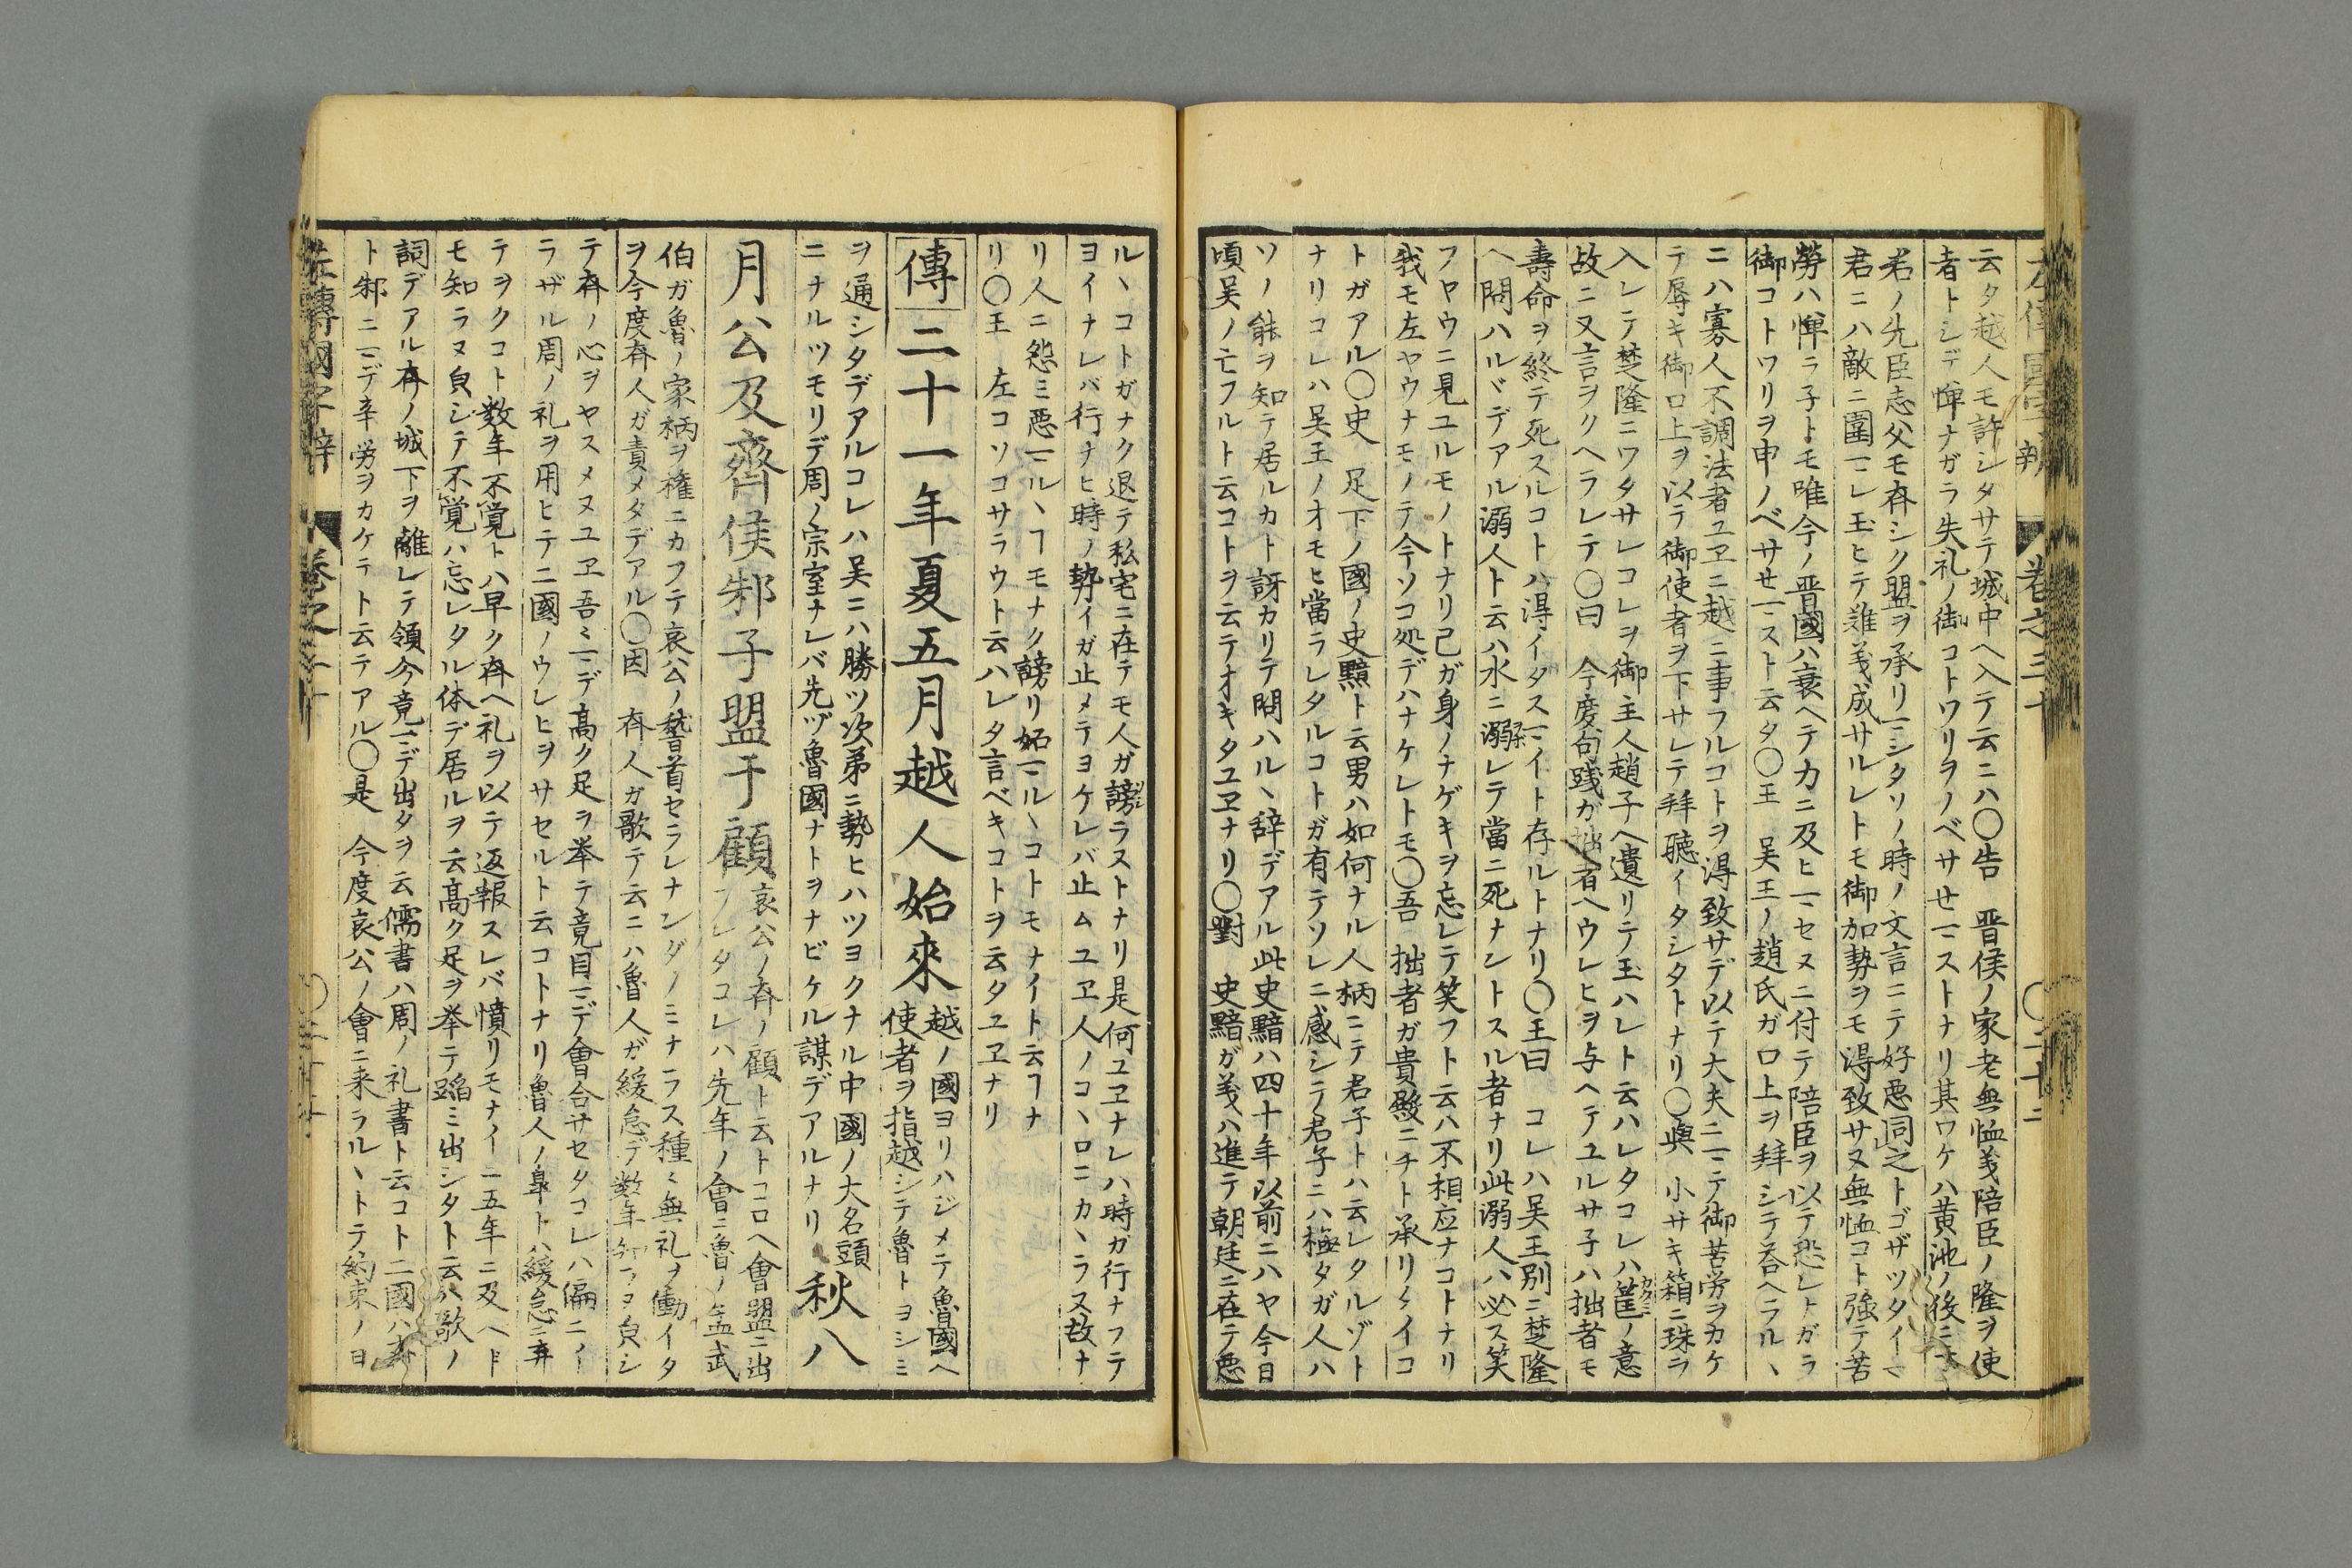 云タ越人モ許シタサテ城中ヘ入テ云ニハ〇告 晋侯ノ家老無恤義陪臣ノ隆ヲ使
者トシテ憚ナガラ失礼ノ御コトワリヲノベサセマストナリ其ワケハ黄池ノ後ニ
君ノ先臣志父モ斉シク盟ヲ承リマシタソノ時ノ文言ニテ好悪同之トゴザツタイマ
君ニハ敵ニ圍マレ玉ヒテ難義成サルレトモ御加勢ヲモ得致サヌ無恤コト強テ苦
勞ハ憚ラ子トモ唯今ノ晋國ハ衰ヘテ力ニ及ヒマセヌニ付テ陪臣ヲ以テ恐レナガラ
御コトワリヲ申ノベサセマスト云タ〇王 吴王ノ趙氏ガ口上ヲ拜シテ荅ヘラルヽ
ニハ寡人不調法者ユヱニ越ニ事フルコトヲ得致サデ以テ大夫ニマデ御苦労ヲカケ
テ辱キ御口上ヲ以テ御使者ヲ下サレテ拜聴イタシタトナリ〇與 小サキ箱ニ珠ヲ
入レテ楚隆ニワタサレコレヲ御主人趙子ヘ遺リテ玉ハレト云ハレタコレハ筐ノ意
故ニ又言ヲクヘラレテ〇曰 今度句踐ガ拙者ヘウレヒヲ与ヘテユルサ子ハ拙者モ
壽命ヲ終テ死スルコトハ得イタスマイト存ルトナリ〇王曰 コレハ吴王別ニ楚隆
ヘ問ハルヽデアル溺人ト云ハ水ニ溺レテ當ニ死ナントスル者ナリ此溺人ハ必ス笑
フヤウニ見ユルモノトナリ己ガ身ノナゲキヲ忘レテ笑フト云ハ不相应ナコトナリ
我モ左ヤウナモノテ今ソコ処デハナケレトモ〇吾 拙者ガ貴殿ニチト承リタイコ
トガアル〇史 足下ノ國ノ史黯ト云男ハ如何ナル人柄ニテ君子トハ云レタルゾト
ナリコレハ吴王ノオモヒ當ラレタルコトガ有テソレニ感シテ君子ニハ極タガ人ハ
ソノ能ヲ知テ居ルカト訝カリテ問ハルヽ辞デアル此史黯ハ四十年以前ニハヤ今日
頃吴ノ亡フルト云コトヲ云テオキタユヱナリ〇對 史黯ガ義ハ進テ朝廷ニ在テ悪
ルヽコトガナク退テ私宅ニ在テモ人ガ謗ラストナリ是何ユヱナレハ時ガ行ナフテ
ヨイナレバ行ナヒ時ノ勢イガ止メテヨケレバ止ムユヱ人ノコヽロニカヽラス故ナ
リ人ニ怨ミ悪マルヽコトモナク謗リ妬マルヽコトモナイト云コナ
リ〇王 左コソコサラウト云ハレタ言ベキコトヲ云タユヱナリ
傳二十一年夏五月越人始來 越ノ國ヨリハジメテ魯國ヘ
使者ヲ指越シテ魯トヨシミ
ヲ通シタデアルコレハ吴ニハ勝ツ次第ニ勢ヒハツヨクナル中國ノ大名頭
ニナルツモリデ周ノ宗室ナレバ先ヅ魯國ナトヲナビケル謀デアルナリ 秋八
月公及齊侯邾子盟于顧 哀公ノ斉ノ顧ト云トコロヘ會盟ニ出
ラレタコレハ先年ノ會ニ魯ノ孟武
伯ガ魯ノ家柄ヲ権ニカフテ哀公ノ稽首セラレナンダノミナラス種々無礼ヲ働イタ
ヲ今度斉人ガ責メタデアル〇因 斉人ガ歌テ云ニハ魯人ガ緩怠デ数年知ラヌ負シ
テ斉ノ心ヲヤスメヌユヱ吾々マデ高ク足ヲ挙テ竟目マデ會合サセタコレハ偏ニイ
ラザル周ノ礼ヲ用ヒテ二國ノウレヒヲサセルト云コトナリ魯人ノ皐トハ緩怠ニ弃
テヲクコト数年不覚トハ早ク斉ヘ礼ヲ以テ返報スレバ憤リモナイニ五年ニ及ヘド
モ知ラヌ負シテ不覚ハ忘レタル体デ居ルヲ云高ク足ヲ挙テ蹈ミ出シタト云ハ歌ノ
詞デアル斉ノ城下ヲ離レテ領分竟マデ出タヲ云儒書ハ周ノ礼書ト云コト二國ハ斉
ト邾ニマデ辛労ヲカケテト云テアル〇是 今度哀公ノ會ニ来ラルヽトテ約束ノ日